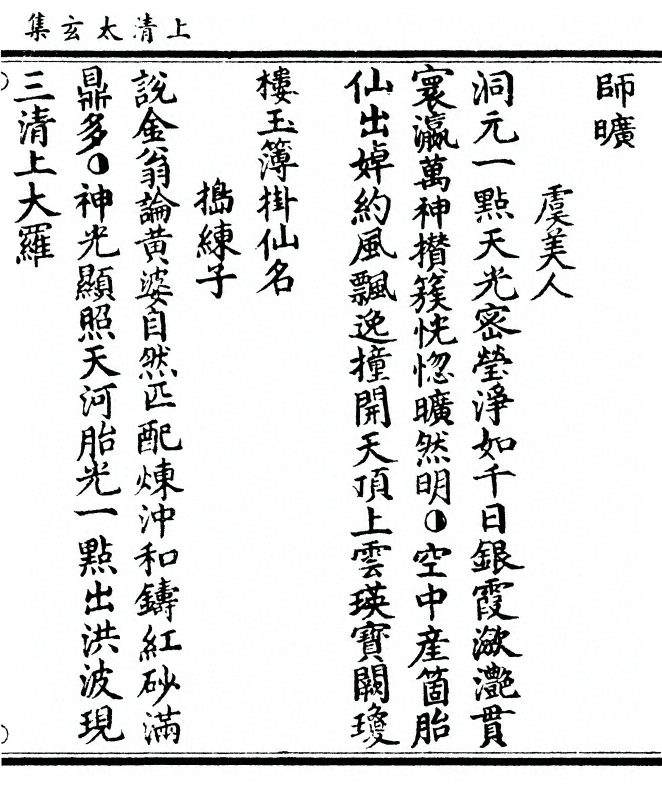 上清太玄集
師曠
虞美人
洞元一點天光密瑩淨如千日銀霞瀲灔貫
寰瀛萬神攢簇恍惚曠然明◑空中産箇胎
仙出婥約風飄逸撞開天頂上雲瑛寶闕瓊
樓玉簿掛仙名
搗練子
說金翁論黃婆自然匹配煉沖和鑄紅砂滿
鼎多◑神光顯照天河胎光一點出洪波現
三清上大羅